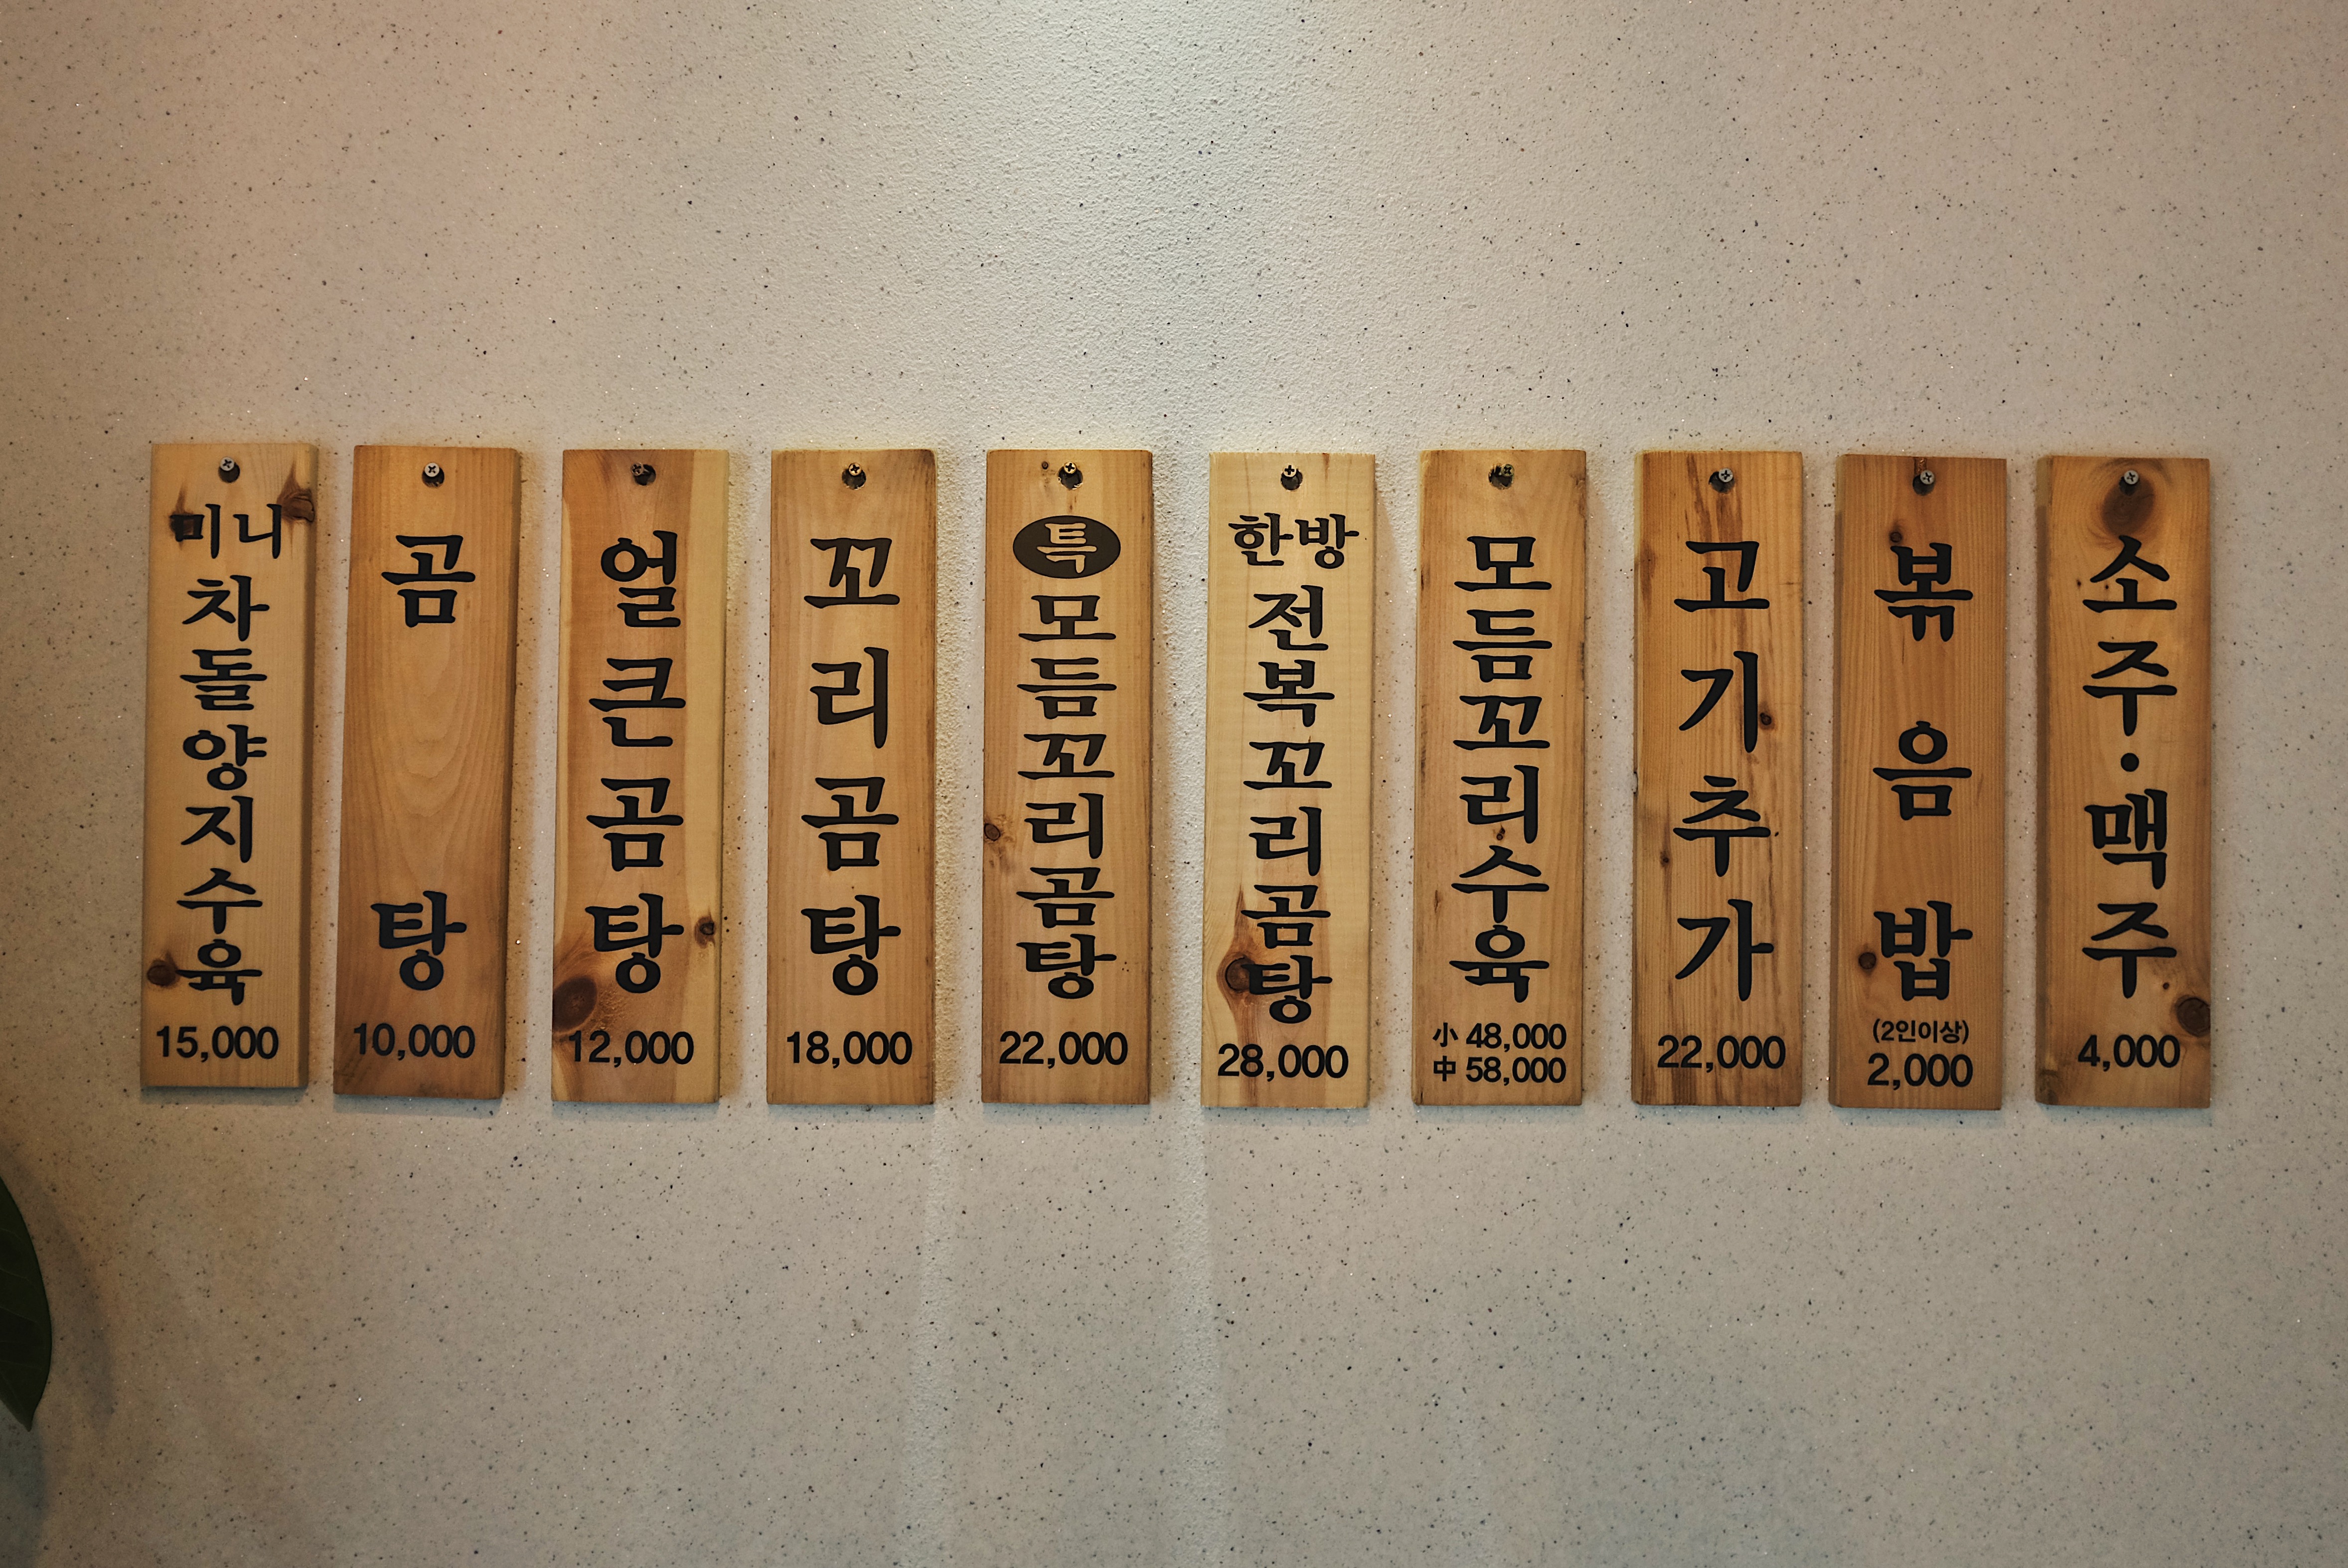 미니
차돌양지수육
15,000
곰탕
10,000
얼큰곰탕
12,000
꼬리곰탕
18,000
특
모듬꼬리곰탕
22,000
한방
전복꼬리곰탕
28,000
모듬꼬리수육
小 48,000
中 58,000
고기추가
22,000
볶음밥
(2인이상)
2,000
소주·맥주
4,000